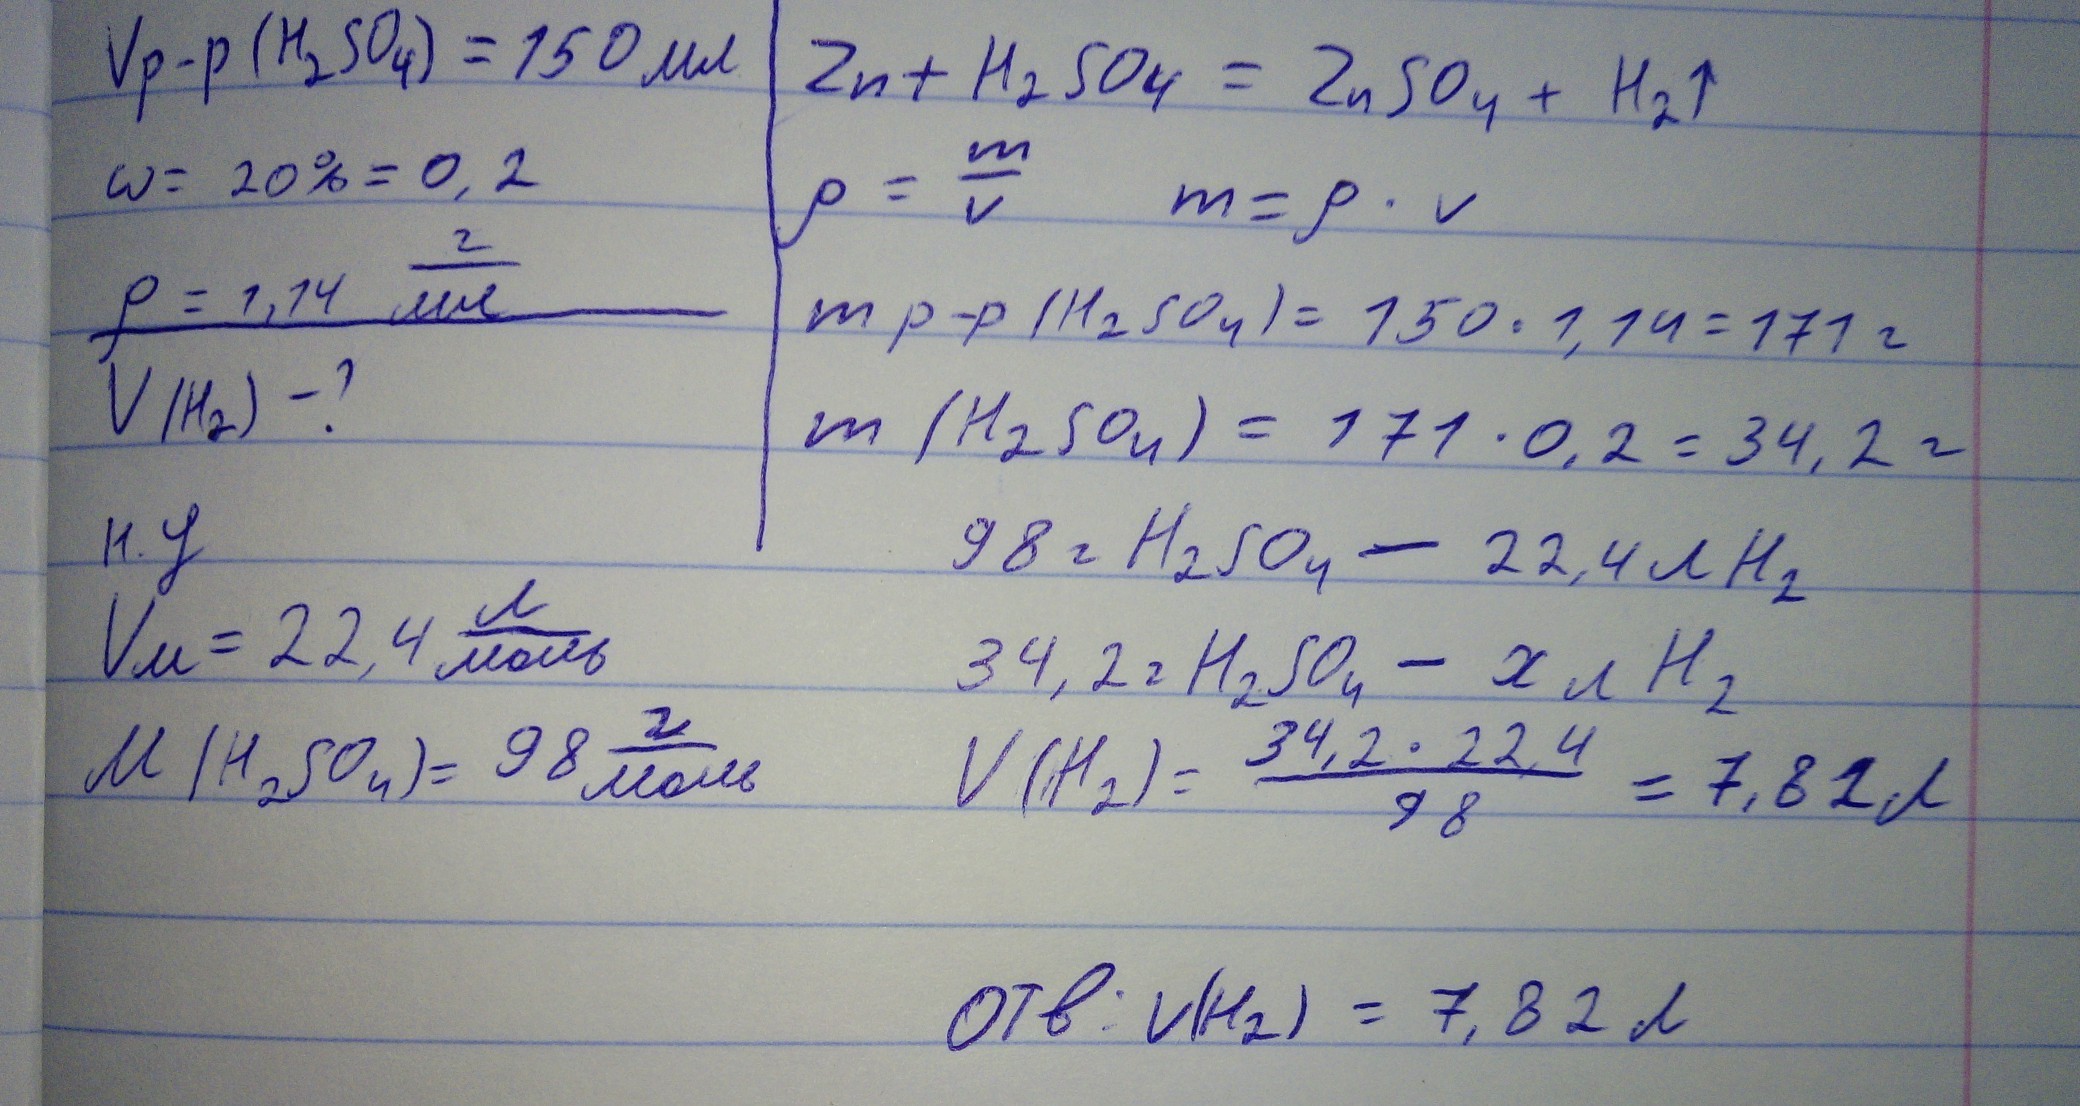 Vр-р (H₂SO₄) = 150 мл
ω = 20% = 0,2
ρ = 1,14 г/мл
V (H₂) - ?
н.у
Vм = 22,4 л/моль
M (H₂SO₄) = 98 г/моль
Zn + H₂SO₄ = ZnSO₄ + H₂↑
ρ = m/v m = ρ · v
m р-р (H₂SO₄) = 150 · 1,14 = 171 г
m (H₂SO₄) = 171 · 0,2 = 34,2 г
98 г H₂SO₄ — 22,4 л H₂
34,2 г H₂SO₄ — x л H₂
V (H₂) = 34,2 · 22,4 / 98 = 7,82 л
Отв: V(H₂) = 7,82 л